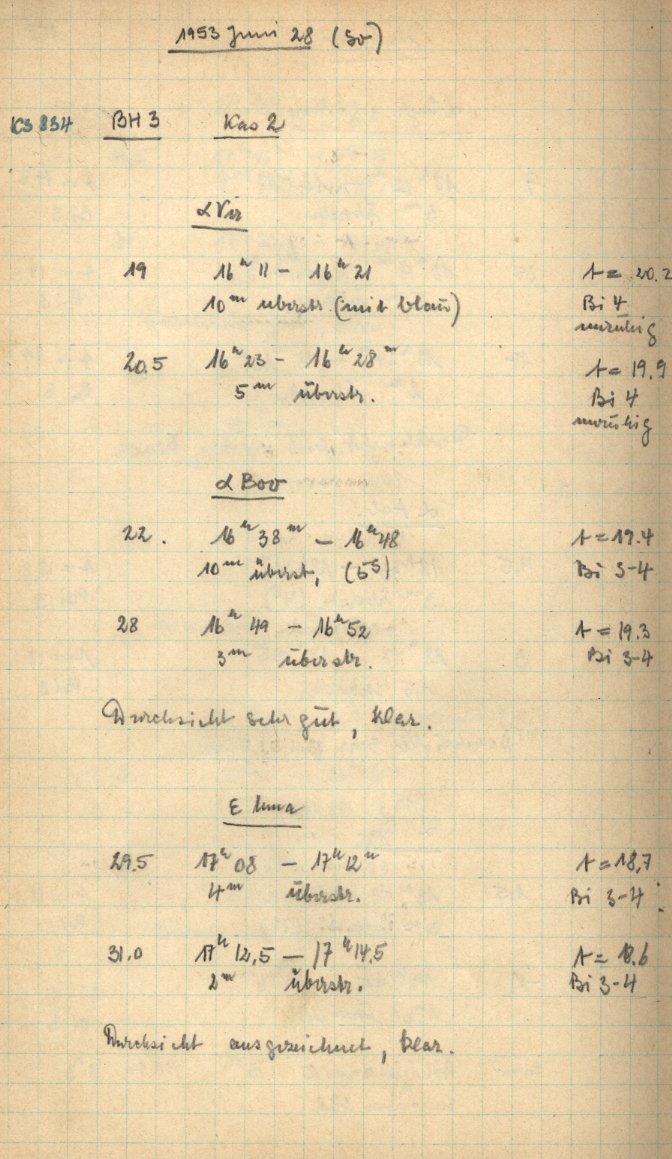 1953 Juni 28 (So)
KS 834 BH 3 Kas 2
α Vir
19 16ʰ 11 – 16ʰ 21 t = 20.2
10ᵐ überstr. (mit blau) Bi 4
unruhig
20.5 16ʰ 23 – 16ʰ 28ᵐ t = 19.9
5ᵐ überstr. Bi 4
unruhig
α Boo
22. 16ʰ 38ᵐ – 16ʰ 48 t = 19.4
10ᵐ überst, Bi 3-4
28 16ʰ 49 – 16ʰ 52 t = 19.3
3ᵐ überstr. Bi 3-4
Durchsicht sehr gut, klar.
ε Uma
29.5 17ʰ 08 – 17ʰ 12ᵐ t = 18,7
4ᵐ überstr. Bi 3-4
31.0 17ʰ 12,5 – 17ʰ 14,5 t = 18.6
2ᵐ überstr. Bi 3-4
Durchsicht ausgezeichnet, klar.